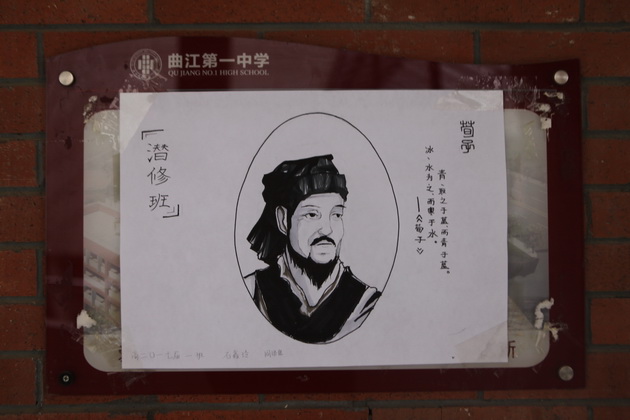 曲江第一中学
QU JIANG NO.1 HIGH SCHOOL
「潜修班」
荀子
青、取之于蓝而青于蓝。
冰、水为之、而寒于水。
——《荀子》